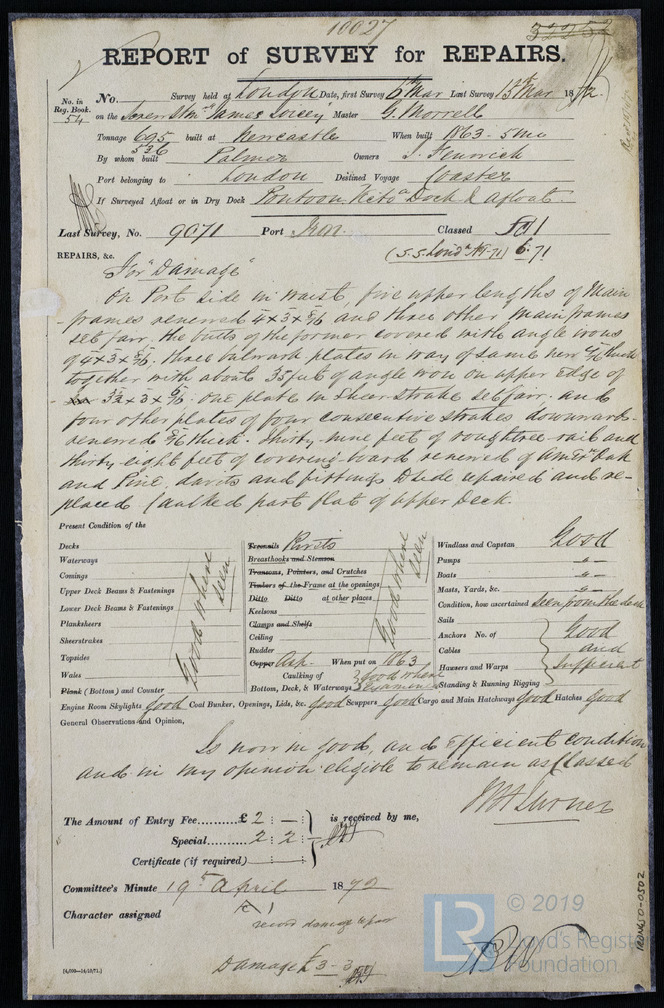 10027
REPORT of SURVEY for REPAIRS.
No. in Reg. Book. 54
No. Survey held at London Date, first Survey 6th Mar Last Survey 13th Mar 1872
on the Screw Str "James Joicey" Master G. Morrell
Tonnage 695 built at Newcastle When built 1863-5mo
536
By whom built Palmer Owners J. Fenwick
Port belonging to London Destined Voyage Coaster
If Surveyed Afloat or in Dry Dock Pontoon, Vict'a Dock & afloat.
Last Survey, No. 9071 Port Iron. Classed A1
REPAIRS, &c. (S.S. Lond'n No 1-71) 6.71
For "Damage"
On Port side in waist, five upper lengths of Main
frames renewed 4 x 3 x 8/16 and three other main frames
set fair. the butts of the former covered with angle irons
of 4 x 3 x 8/16. three bulwark plates in way of same new 5/16 thick
together with about 35 feet of angle iron on upper edge of
3½ x 3 x 6/16. one plate in Sheer strake set fair. and
four other plates of four consecutive strakes downward.
renewed 9/16 thick. Thirty-nine feet of roughtree rail and
thirty-eight feet of covering board renewed of Amer'n Oak
and Pine. davits and fittings D side repaired and re-
placed. Caulked part flat of upper Deck.
Present Condition of the
Decks
Waterways
Comings
Upper Deck Beams & Fastenings
Lower Deck Beams & Fastenings
Planksheers
Sheerstrakes
Topsides
Wales
Plank (Bottom) and Counter
Good where seen
Treenails Rivets
Breasthooks and Stemson
Transoms, Pointers, and Crutches
Timbers of the Frame at the openings
Ditto Ditto at other places
Keelsons
Clamps and Shelfs
Ceiling
Rudder
Good where seen
Copper Asp. When put on 1863
Caulking of Bottom, Deck, & Waterways Good where examined
Windlass and Capstan Good
Pumps "
Boats "
Masts, Yards, &c. "
Condition, how ascertained Seen from the deck
Sails
Anchors No. of
Cables
Hawsers and Warps
Standing & Running Rigging
Good and Sufficient
Engine Room Skylights good Coal Bunker, Openings, Lids, &c. good Scuppers good Cargo and Main Hatchways Good Hatches Good
General Observations and Opinion,
Is now in good, and Efficient condition
and in my opinion eligible to remain as Classed
The Amount of Entry Fee £ 2 : — : is received by me,
Special 2 : 2 :
Certificate (if required) : :
Committee's Minute 19th April 1872
Character assigned A1
record damage repair
Damage £ 3-3
[4,000—14/10/71.]
IRON450-0502
LR © 2019
Lloyd's Register
Foundation